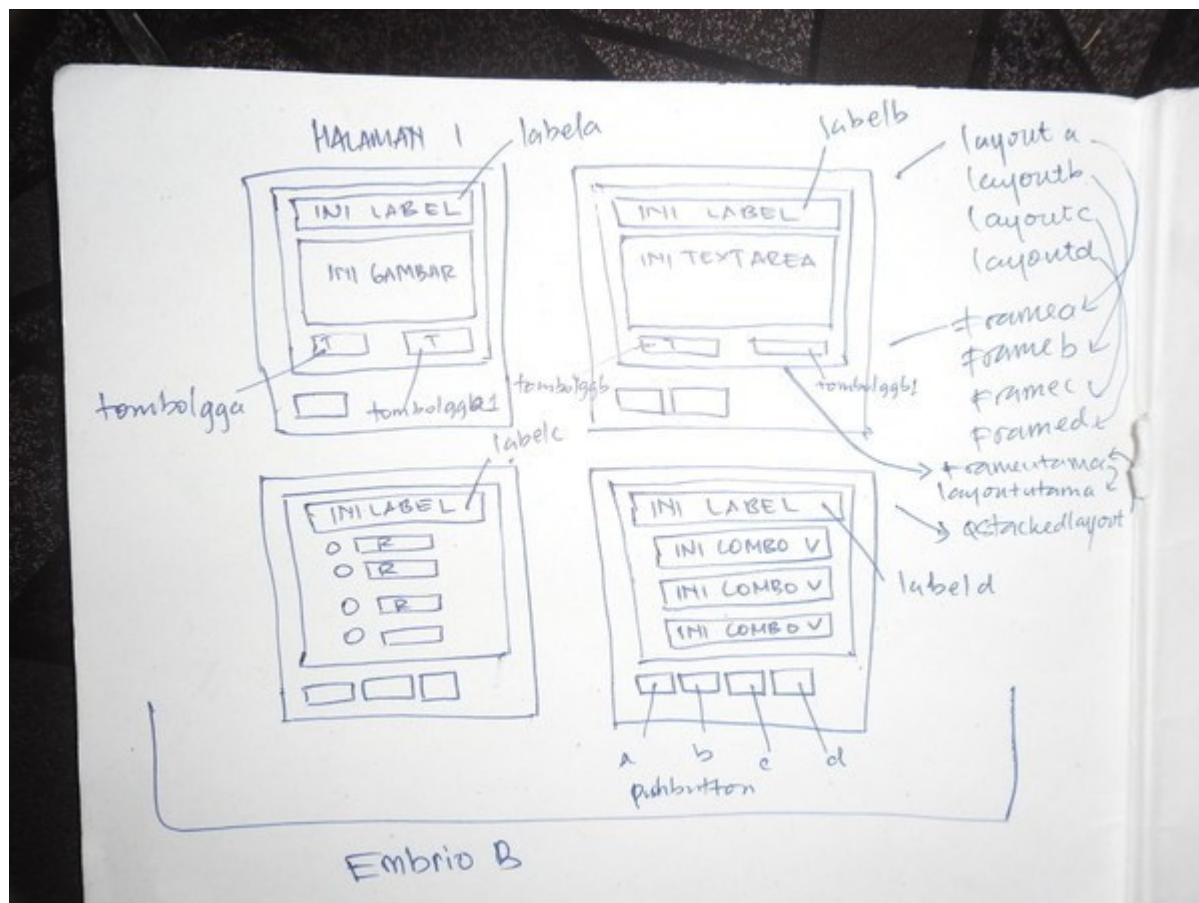 HALAMAN 1
labela
INI LABEL
INI GAMBAR
T
T
tombolgga
labelb
INI LABEL
INI TEXT AREA
T
tombolggb
tombolggb1
layout a
layoutb
layoutc
layoutd
framea
frameb
framec
framed
frameutama
layoututama
QStackedlayout
labelc
INI LABEL
R
R
R
INI LABEL
INI COMBO V
INI COMBO V
INI COMBO V
labeld
a
b
c
d
pushbutton
Embrio B